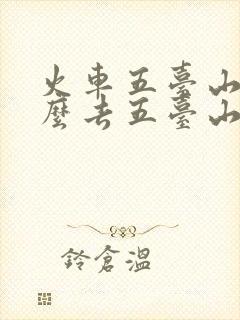 火車五臺山
麼去五臺山
鈴倉溫